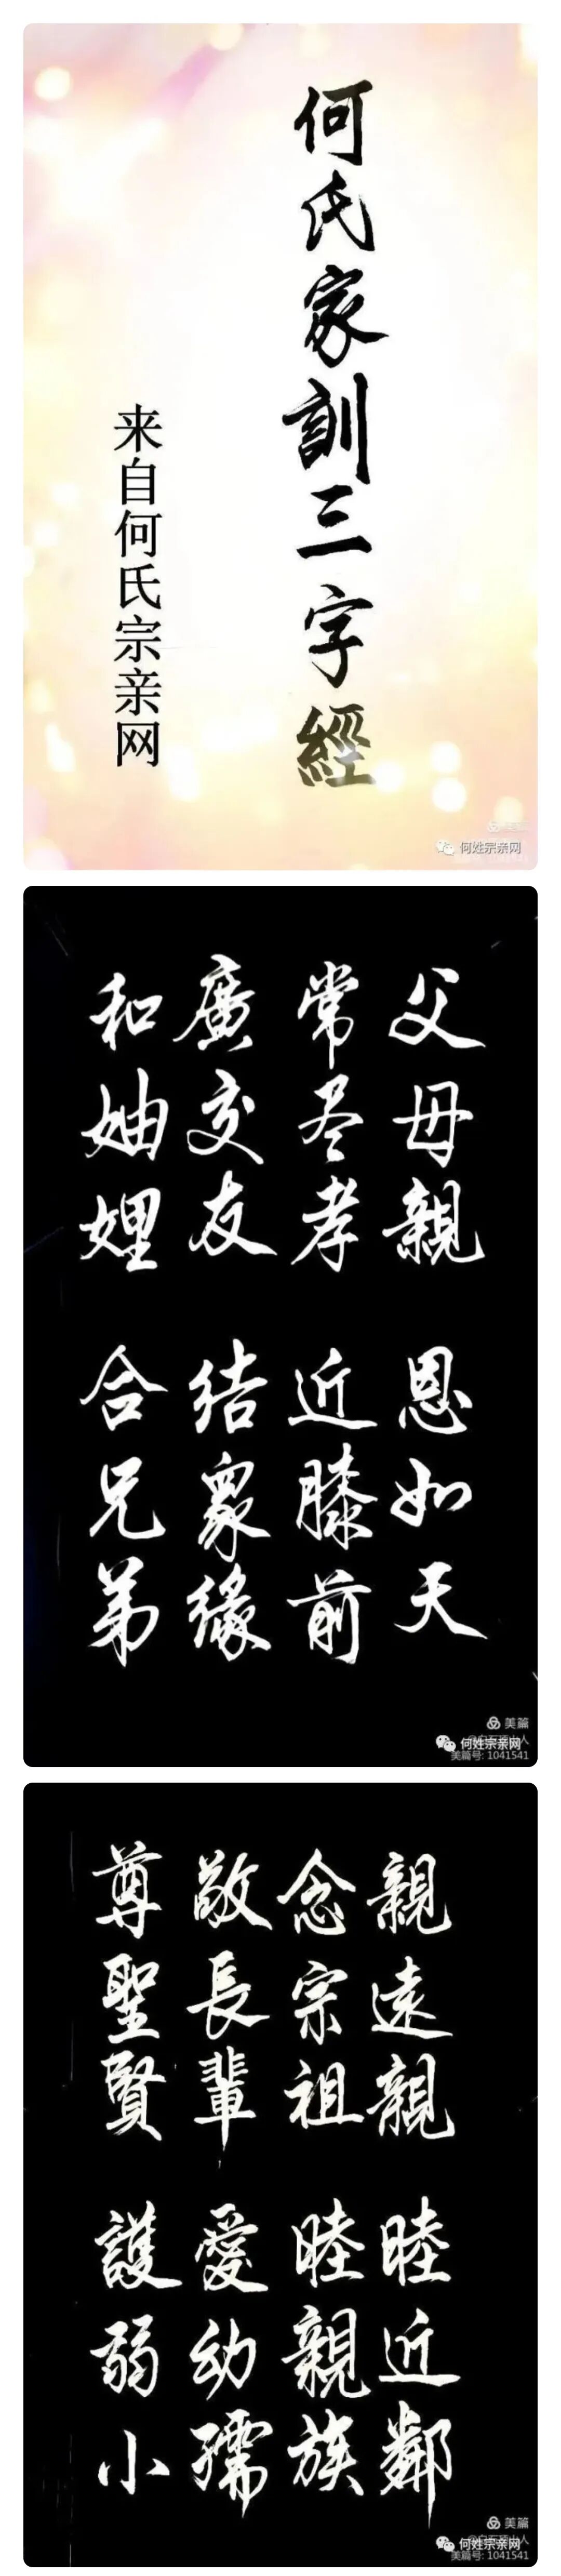 何氏家訓三字經
来自何氏宗亲网
何姓宗亲网
父母親 恩如天
常尽孝 近膝前
廣交友 结衆緣
和妯娌 合兄弟
美篇
何姓宗亲网
美篇号: 1041541
親遠親 睦近鄰
念宗祖 睦親族
敬長輩 愛幼孺
尊聖賢 護弱小
美篇
何姓宗亲网
美篇号: 1041541